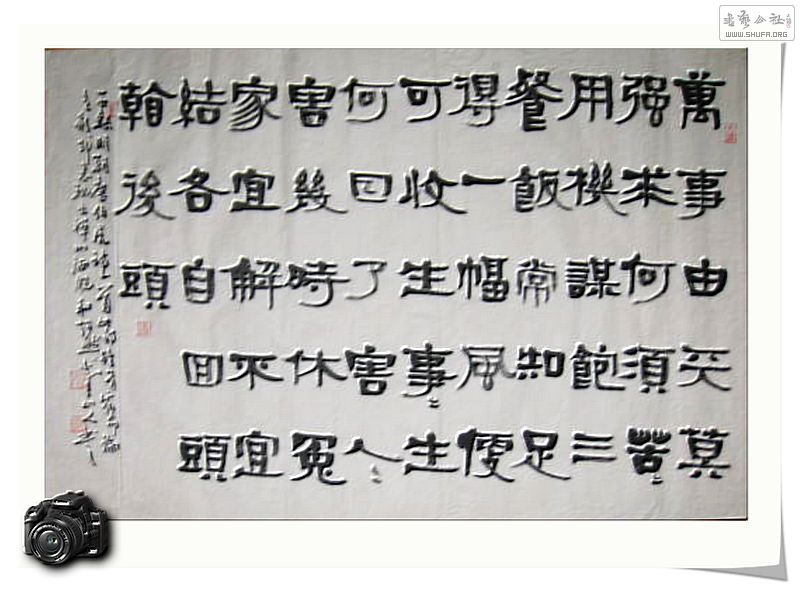 萬事由天莫
强求何須苦〻
用機謀飽三
餐飯常知足
得一幅風便
可收生事〻生
何日了害人〻
害幾時休冤
家宜解不宜
結各自回頭
翰後頭
明朝唐伯虎詩一首
書藝公社
WWW.SHUFA.ORG